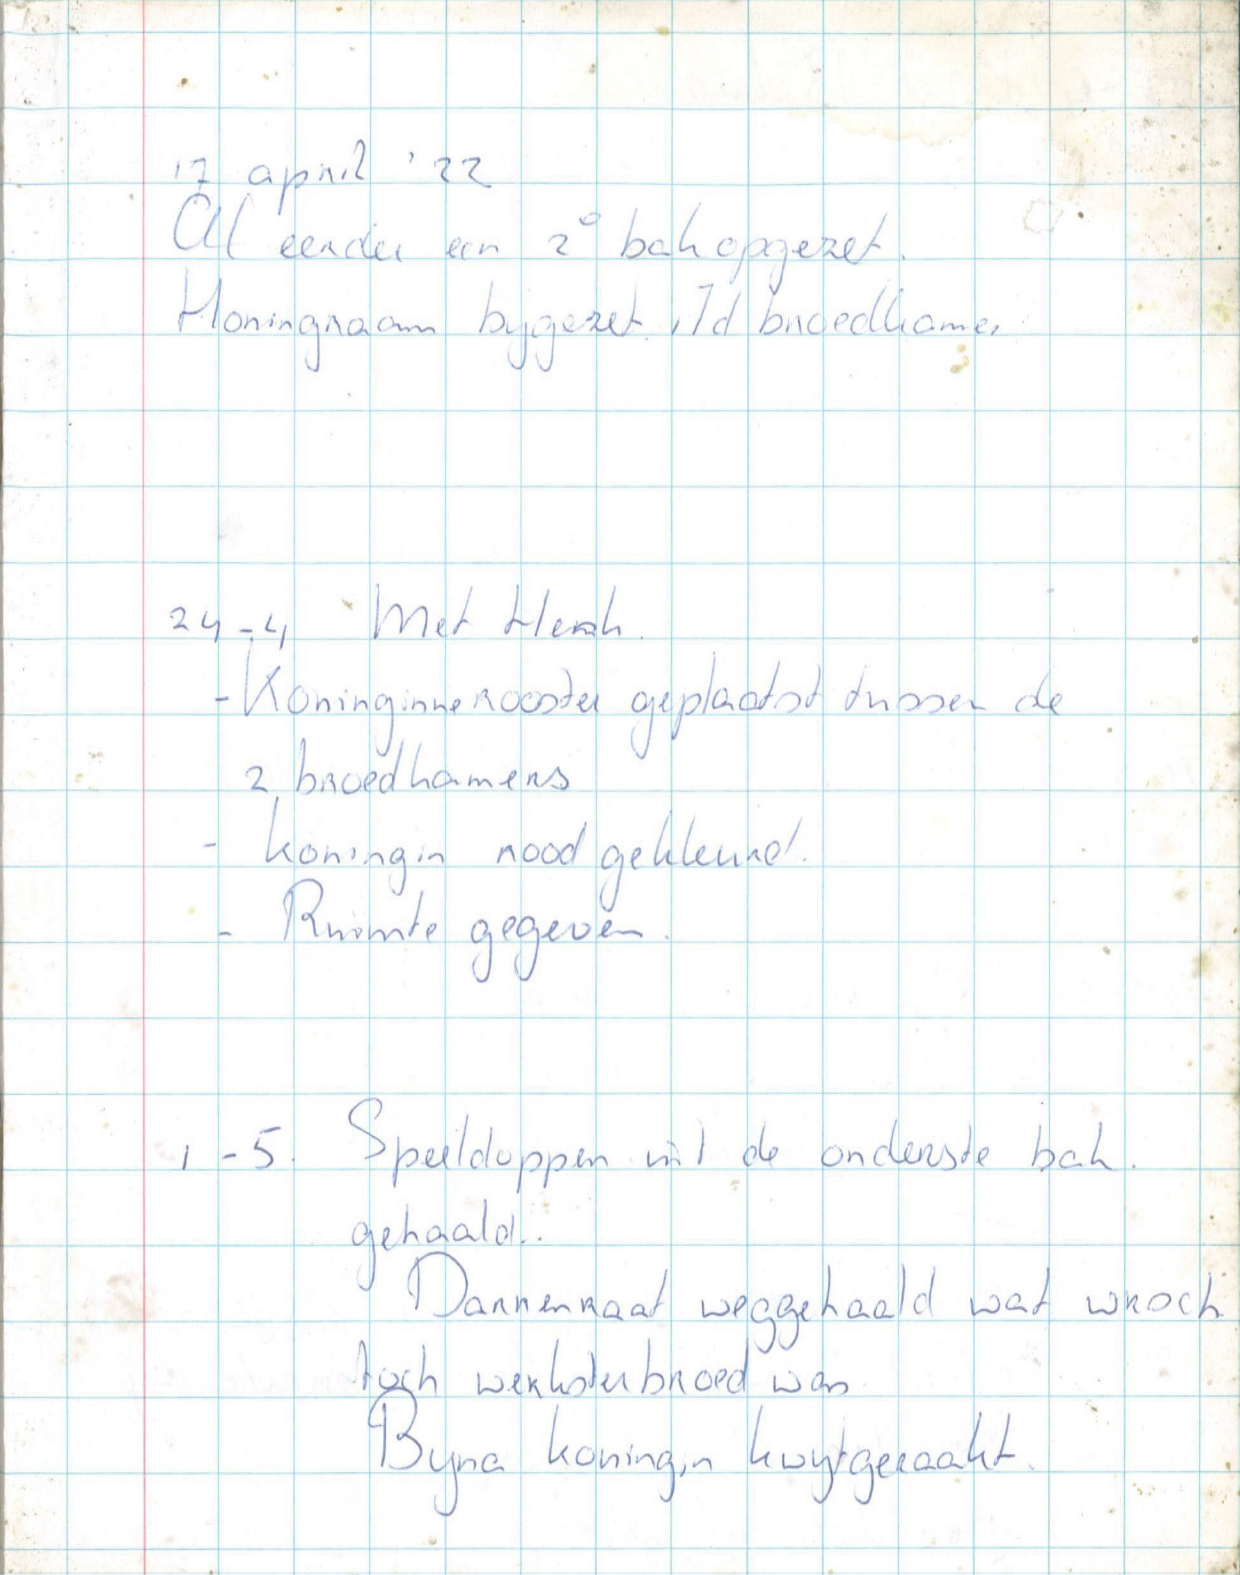 17 april '22
Al eerder een 2e bak opgezet.
Honingraam bygezet i/d broedkamer
24-4 Met Henk.
- Koninginnerooster geplaatst tussen de
2 broedkamers
- koningin rood gekleurd.
- Ruimte gegeven.
1-5. Speeldoppen uit de onderste bak.
gehaald..
Darrenraat weggehaald wat wsch
toch werksterbroed was
Byna koningin kwytgeraakt.